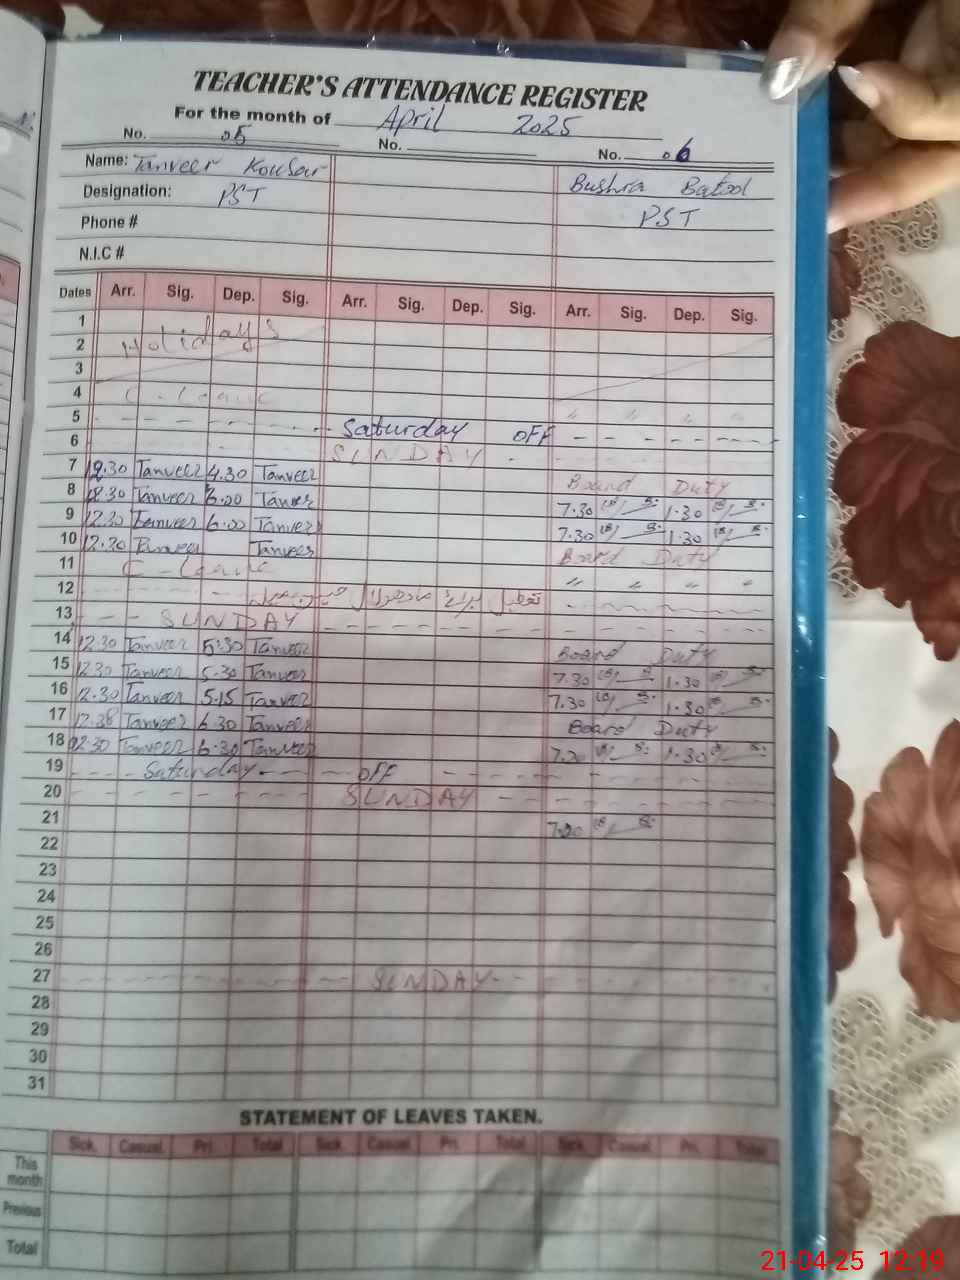 TEACHER'S ATTENDANCE REGISTER
For the month of April 2025
No. 05 No. No. 06
Name: Tanveer Kousar Bushra Batool
Designation: PST PST
Phone #
N.I.C #
Dates Arr. Sig. Dep. Sig. Arr. Sig. Dep. Sig. Arr. Sig. Dep. Sig.
1
2 Holidays
3
4 C-Leave
5 Saturday OFF
6 SUNDAY
7 12.30 Tanveer 4.30 Tanveer Board Duty
8 12.30 Tanveer 6.00 Tanveer 7.30 1.30
9 12.30 Tanveer 6.00 Tanveer 7.30 1.30
10 12.30 Tanveer Tanveer Board Duty
11 C-Leave " " " "
12 تعطیل برائے
13 SUNDAY
14 12.30 Tanveer 5:30 Tanveer Board Duty
15 12.30 Tanveer 5.30 Tanveer 7.30 1.30
16 12.30 Tanveer 5.15 Tanveer 7.30 1.30
17 Tanveer 6.30 Tanveer Board Duty
18 12.30 Tanveer 6.30 Tanveer 1.30
19 Saturday OFF
20 SUNDAY
21
22
23
24
25
26
27 SUNDAY
28
29
30
31
STATEMENT OF LEAVES TAKEN.
Sick. Casual. Pri. Total Sick. Casual. Pri. Total Sick. Casual. Pri. Total
This month
Previous
Total
21-04-25 12:19